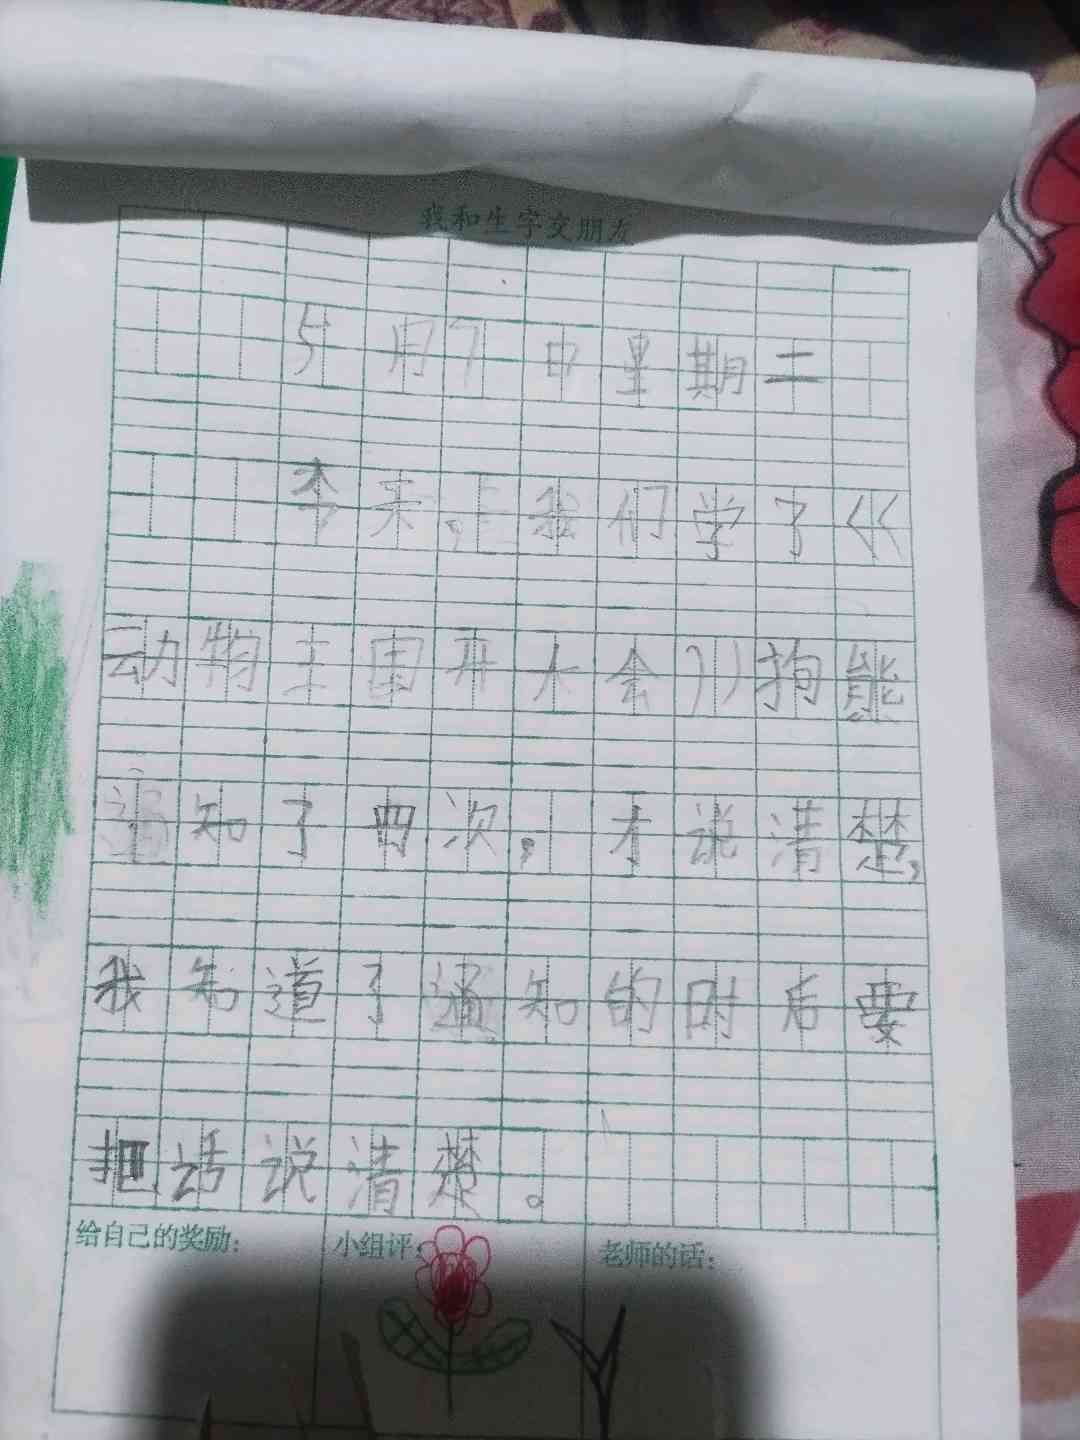 我和生字交朋友
5月7日星期二
李来。我们学了《
动物王国开大会》狗熊
通知了四次,才说清楚,
我知道了通知的时后要
把话说清楚。
给自己的奖励: 小组评: 老师的话: